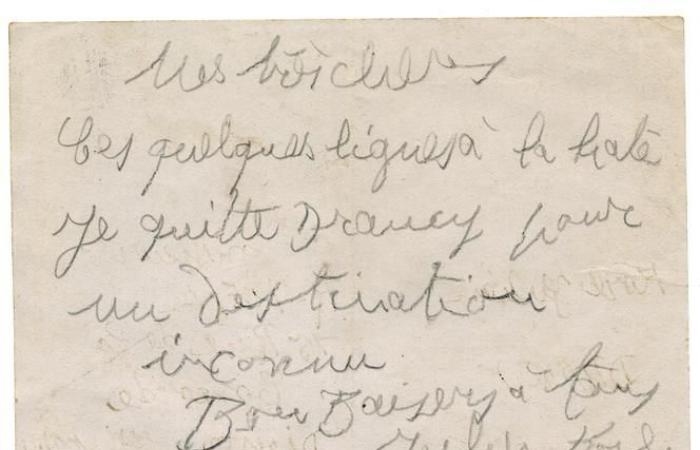 Mes très chères
Ces quelques lignes à la hate
Je quitte Drancy pour
un destination
inconnu
Bon Baisers à tous